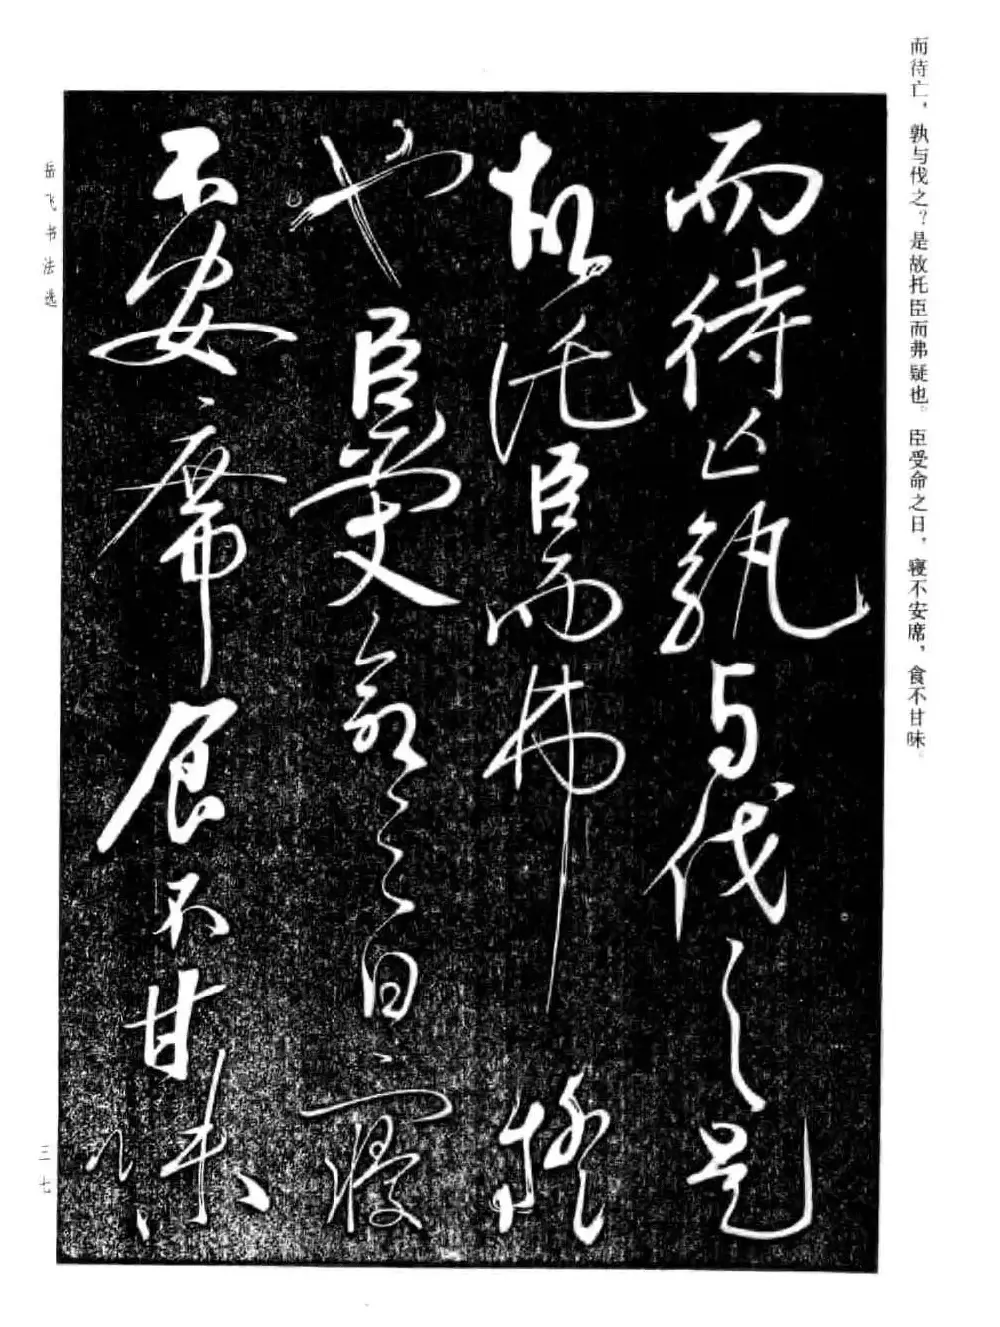 而待亡，孰与伐之？是故托臣而弗疑也。臣受命之日，寝不安席，食不甘味。
而待亡孰与伐之是
故託臣而弗疑
也臣受命之日寝
不安席食不甘味
岳飞书法选
三七